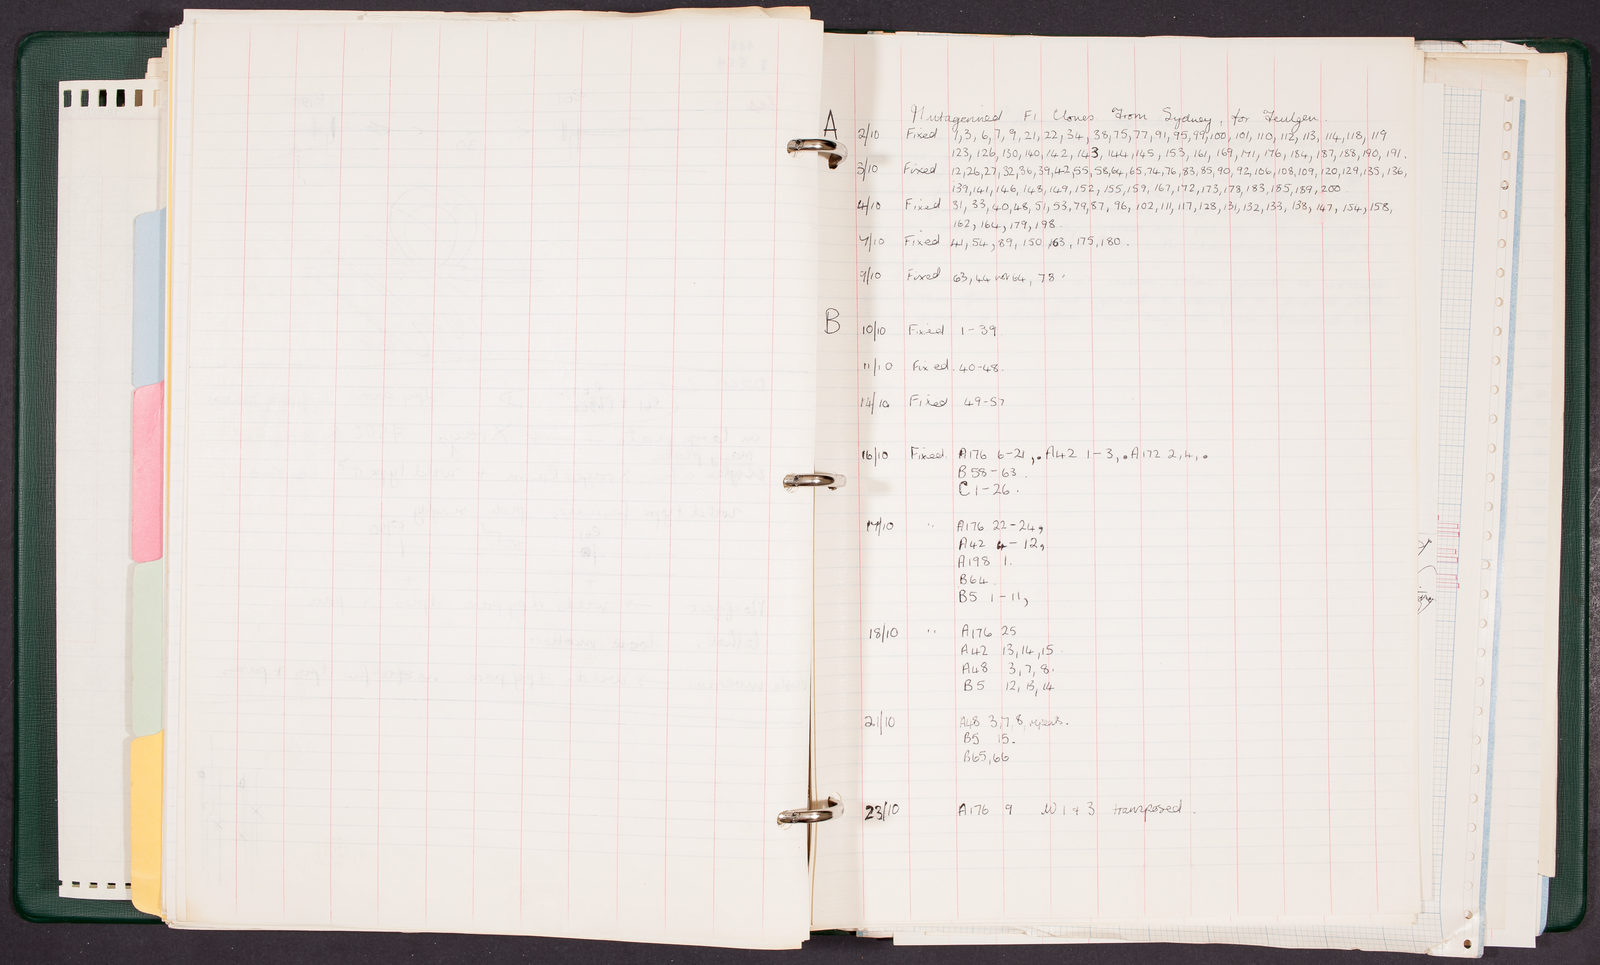 A
Mutagenised F1 Clones from Sydney, for Feulgen.
2/10 Fixed 1, 3, 6, 7, 9, 21, 22, 34, 38, 75, 77, 91, 95, 99, 100, 101, 110, 112, 113, 114, 118, 119
123, 126, 130, 140, 142, 143, 144, 145, 153, 161, 169, 171, 176, 184, 187, 188, 190, 191.
3/10 Fixed 12, 26, 27, 32, 36, 39, 42, 55, 58, 64, 65, 74, 76, 83, 85, 90, 92, 106, 108, 109, 120, 129, 135, 136,
139, 141, 146, 148, 149, 152, 155, 159, 167, 172, 173, 178, 183, 185, 189, 200
4/10 Fixed 31, 33, 40, 48, 51, 53, 79, 87, 96, 102, 111, 117, 128, 131, 132, 133, 138, 147, 154, 158,
162, 164, 179, 198.
7/10 Fixed 41, 54, 89, 150, 163, 175, 180.
9/10 Fixed 63, 44 not 64, 78.
B
10/10 Fixed 1-39
11/10 Fixed. 40-48.
14/10 Fixed 49-57
16/10 Fixed. A176 6-21, . A42 1-3, . A172 2, 4, .
B58-63.
C1-26.
17/10 " A176 22-24,
A42 4-12,
A198 1.
B64.
B5 1-11,
18/10 " A176 25
A42 13, 14, 15
A48 3, 7, 8.
B5 12, 13, 14
21/10 A48 3, 7, 8, repeats.
B5 15.
B65, 66
23/10 A176 9 1 & 3 transposed.